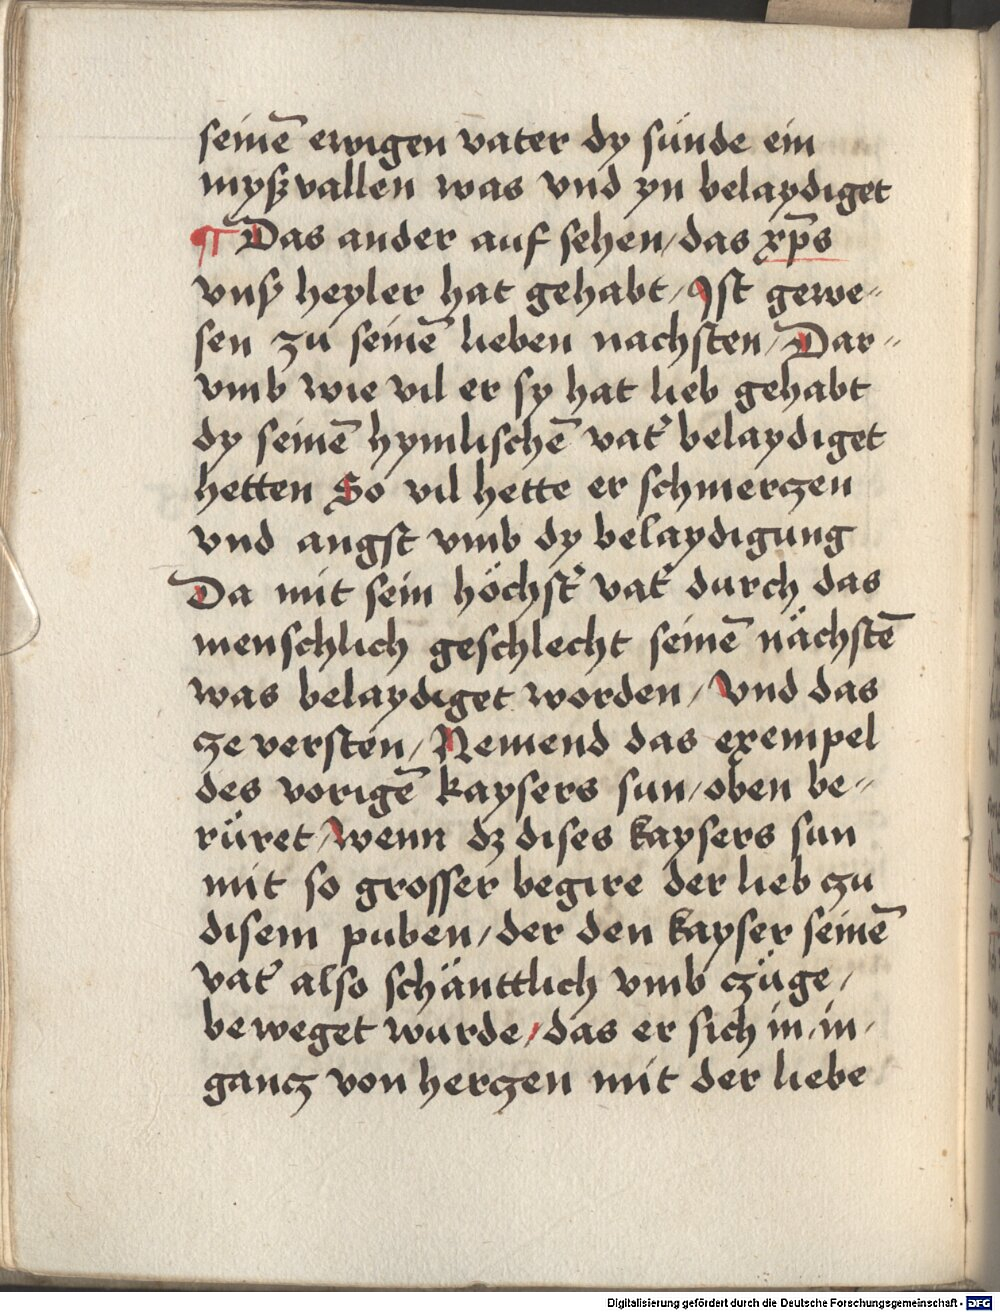 seinē ewigen vater dy sünde ein
myßvallen was vnd yn belaydiget
¶ Das ander auf sehen / das xp̄s
vnß heyler hat gehabt / Ist gewe=
sen zu seinē lieben nachsten / Dar=
vmb wie vil er sy hat lieb gehabt
dy seinē hymlischē vat᷑ belaydiget
hetten So vil hette er schmerczen
vnd angst vmb dy belaydigung
Da mit sein höchst᷑ vat᷑ durch das
menschlich geschlecht seinē nächstē
was belaydiget worden / Vnd das
ze versten / Nemend das exempel
des vorigē kaysers sun / oben be=
rüret / Wenn dz dises kaysers sun
mit so grosser begire der lieb czu
disem puben / der den kayser seinē
vat᷑ also schänttlich vmb czüge /
beweget wurde / das er sich in / in /
gancz von herczen mit der liebe
Digitalisierung gefördert durch die Deutsche Forschungsgemeinschaft - DFG